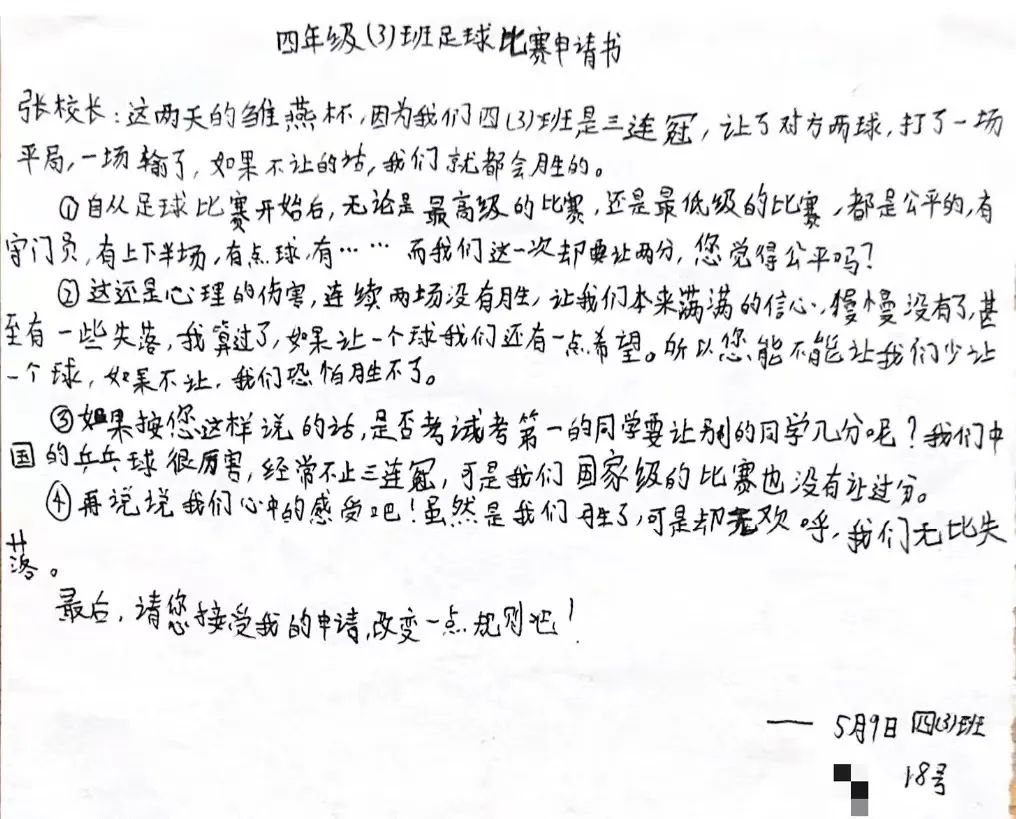 四年级(3)班足球比赛申请书
张校长:这两天的雏燕杯,因为我们四(3)班是三连冠,让了对方两球,打了一场
平局,一场输了,如果不让的话,我们就都会胜的。
①自从足球比赛开始后,无论是最高级的比赛,还是最低级的比赛,都是公平的,有
守门员,有上下半场,有点球,有……而我们这一次却要让两分,您觉得公平吗?
②这还是心理的伤害,连续两场没有胜,让我们本来满满的信心,慢慢没有了,甚
至有一些失落,我算过了,如果让一个球我们还有一点希望。所以您能不能让我们少让
一个球,如果不让,我们恐怕胜不了。
③如果按您这样说的话,是否考试考第一的同学要让别的同学几分呢?我们中
国的乒乓球很厉害,经常不止三连冠,可是我们国家级的比赛也没有让过分。
④再说说我们心中的感受吧!虽然是我们胜了,可是却无欢呼,我们无比失
落。
最后,请您接受我的申请,改变一点规则吧!
——5月9日四(3)班
18号